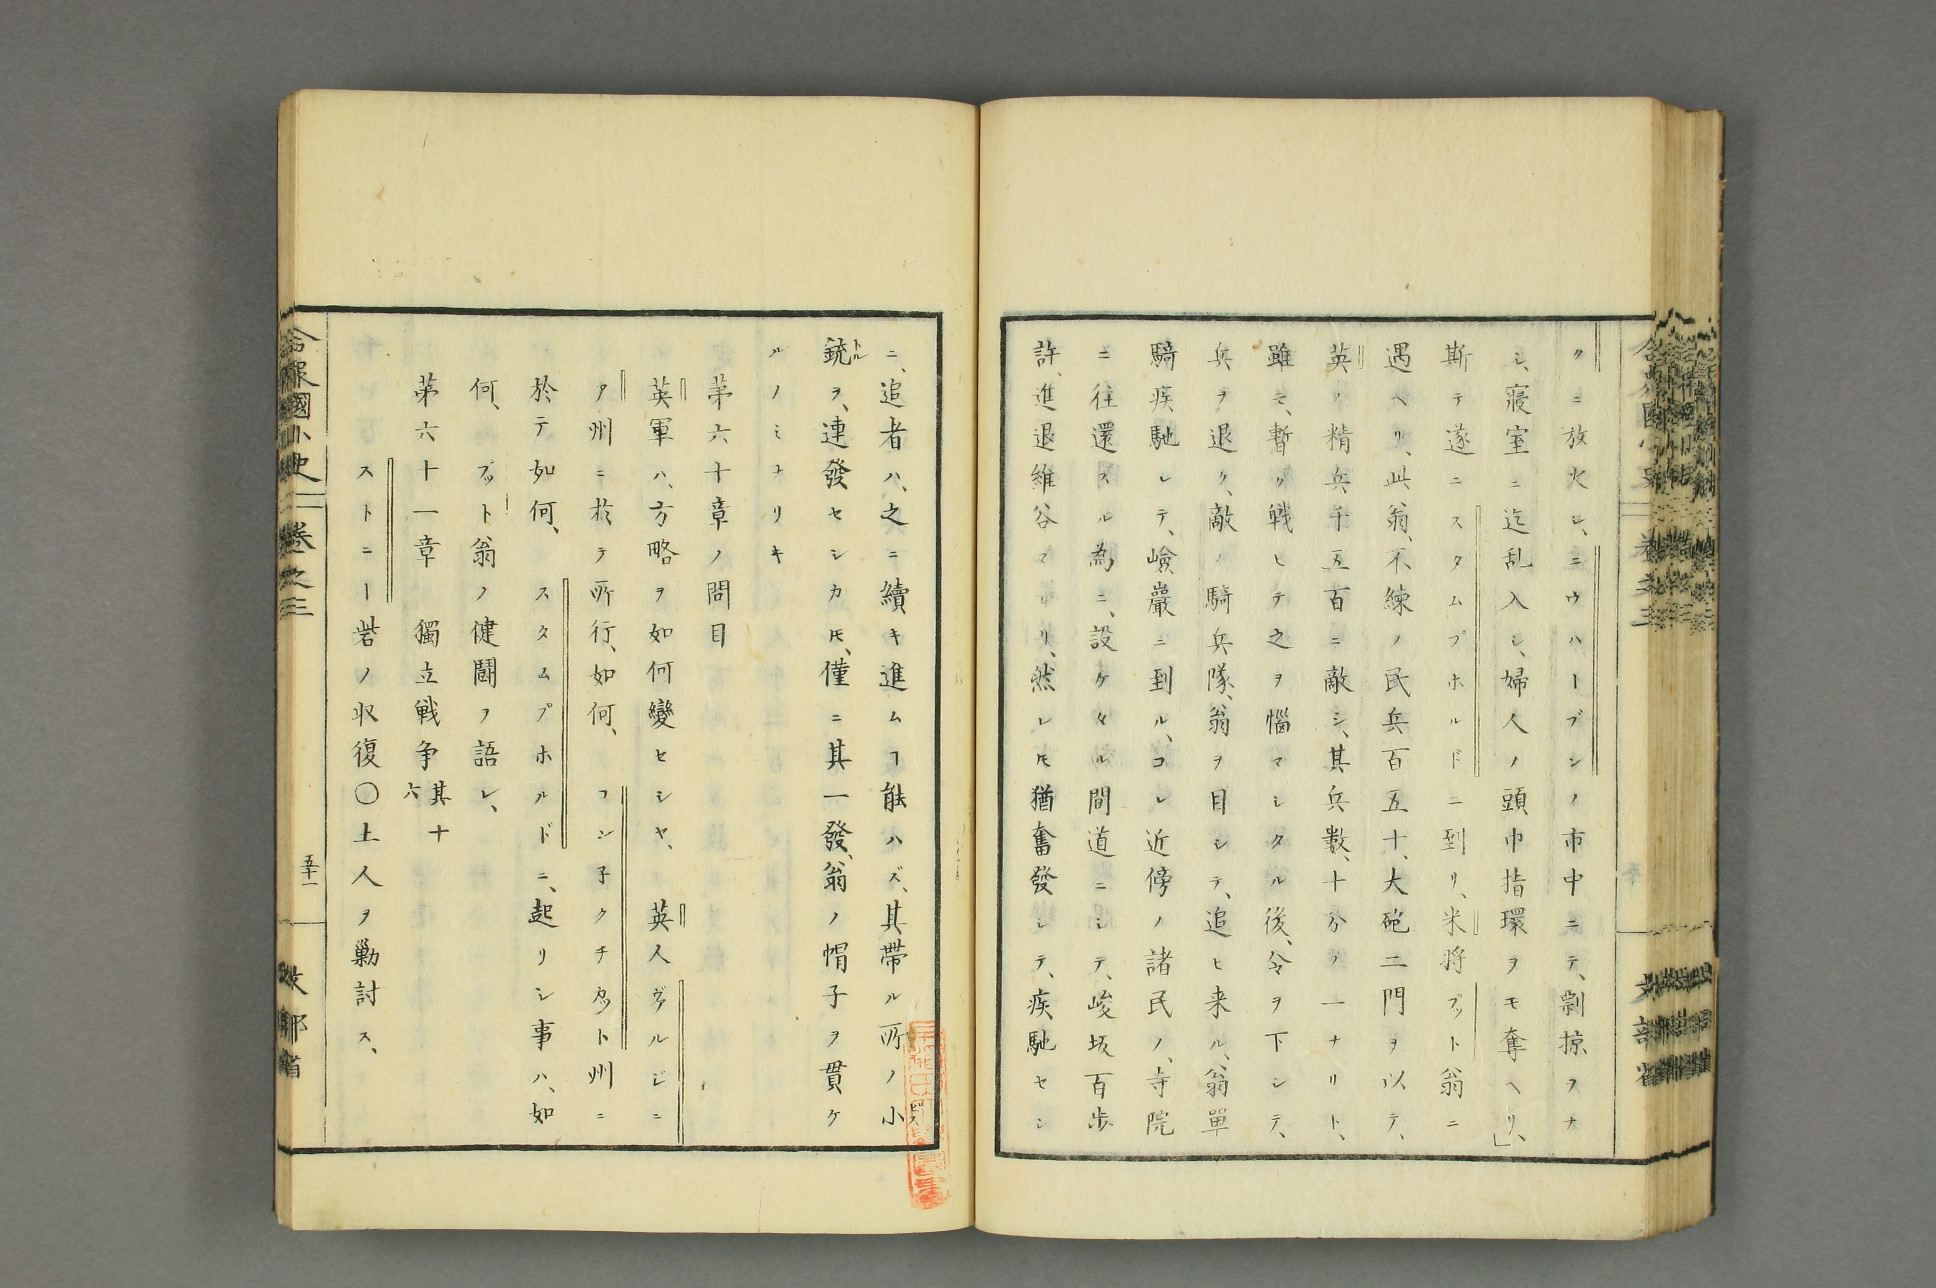 クニ放火シ、ニウハーブンノ市中ニテ、剽掠ヲナ
シ、寢室ニ迄乱入シ、婦人ノ頭巾指環ヲモ奪ヘリ、」
斯テ遂ニスタムプホルドニ到リ、米将プットト翁ニ
遇ヘリ、此翁、不練ノ民兵百五十、大砲二門ヲ以テ、
英ノ精兵千五百ニ敵シ、其兵数、十分ノ一ナリト、
雖モ、暫ク戦ヒテ之ヲ惱マシタル後、令ヲ下シテ、
兵ヲ退ク、敵ノ騎兵隊、翁ヲ目シテ、追ヒ来ル、翁單
騎疾馳シテ、嶮巖ニ到ル、コレ近傍ノ諸民ノ、寺院
ニ往還スル為ニ、設ケタル間道ニシテ、峻坂百歩
許、進退維谷マリ、然レ𪜈猶奮發シテ、疾馳セシ
ニ、追者ハ、之ニ續キ進ムヿ能ハズ、其帯ル所ノ小
銃ヲ、連發セシカ𪜈、僅ニ其一發、翁ノ帽子ヲ貫ケ
ルノミナリキ
第六十章ノ問目
英軍ハ、方略ヲ如何變セシヤ、 英人ヴァルジニ
ア州ニ於テ所行、如何、 コン子クチカット州ニ
於テ如何、 スタムプホルドニ、起リシ事ハ、如
何、 プット翁ノ健闘ヲ語レ、
第六十一章 獨立戦争 其十六
ストニー砦ノ収復〇土人ヲ勦討ス、
合衆國小史 卷之三
五十一
文部省